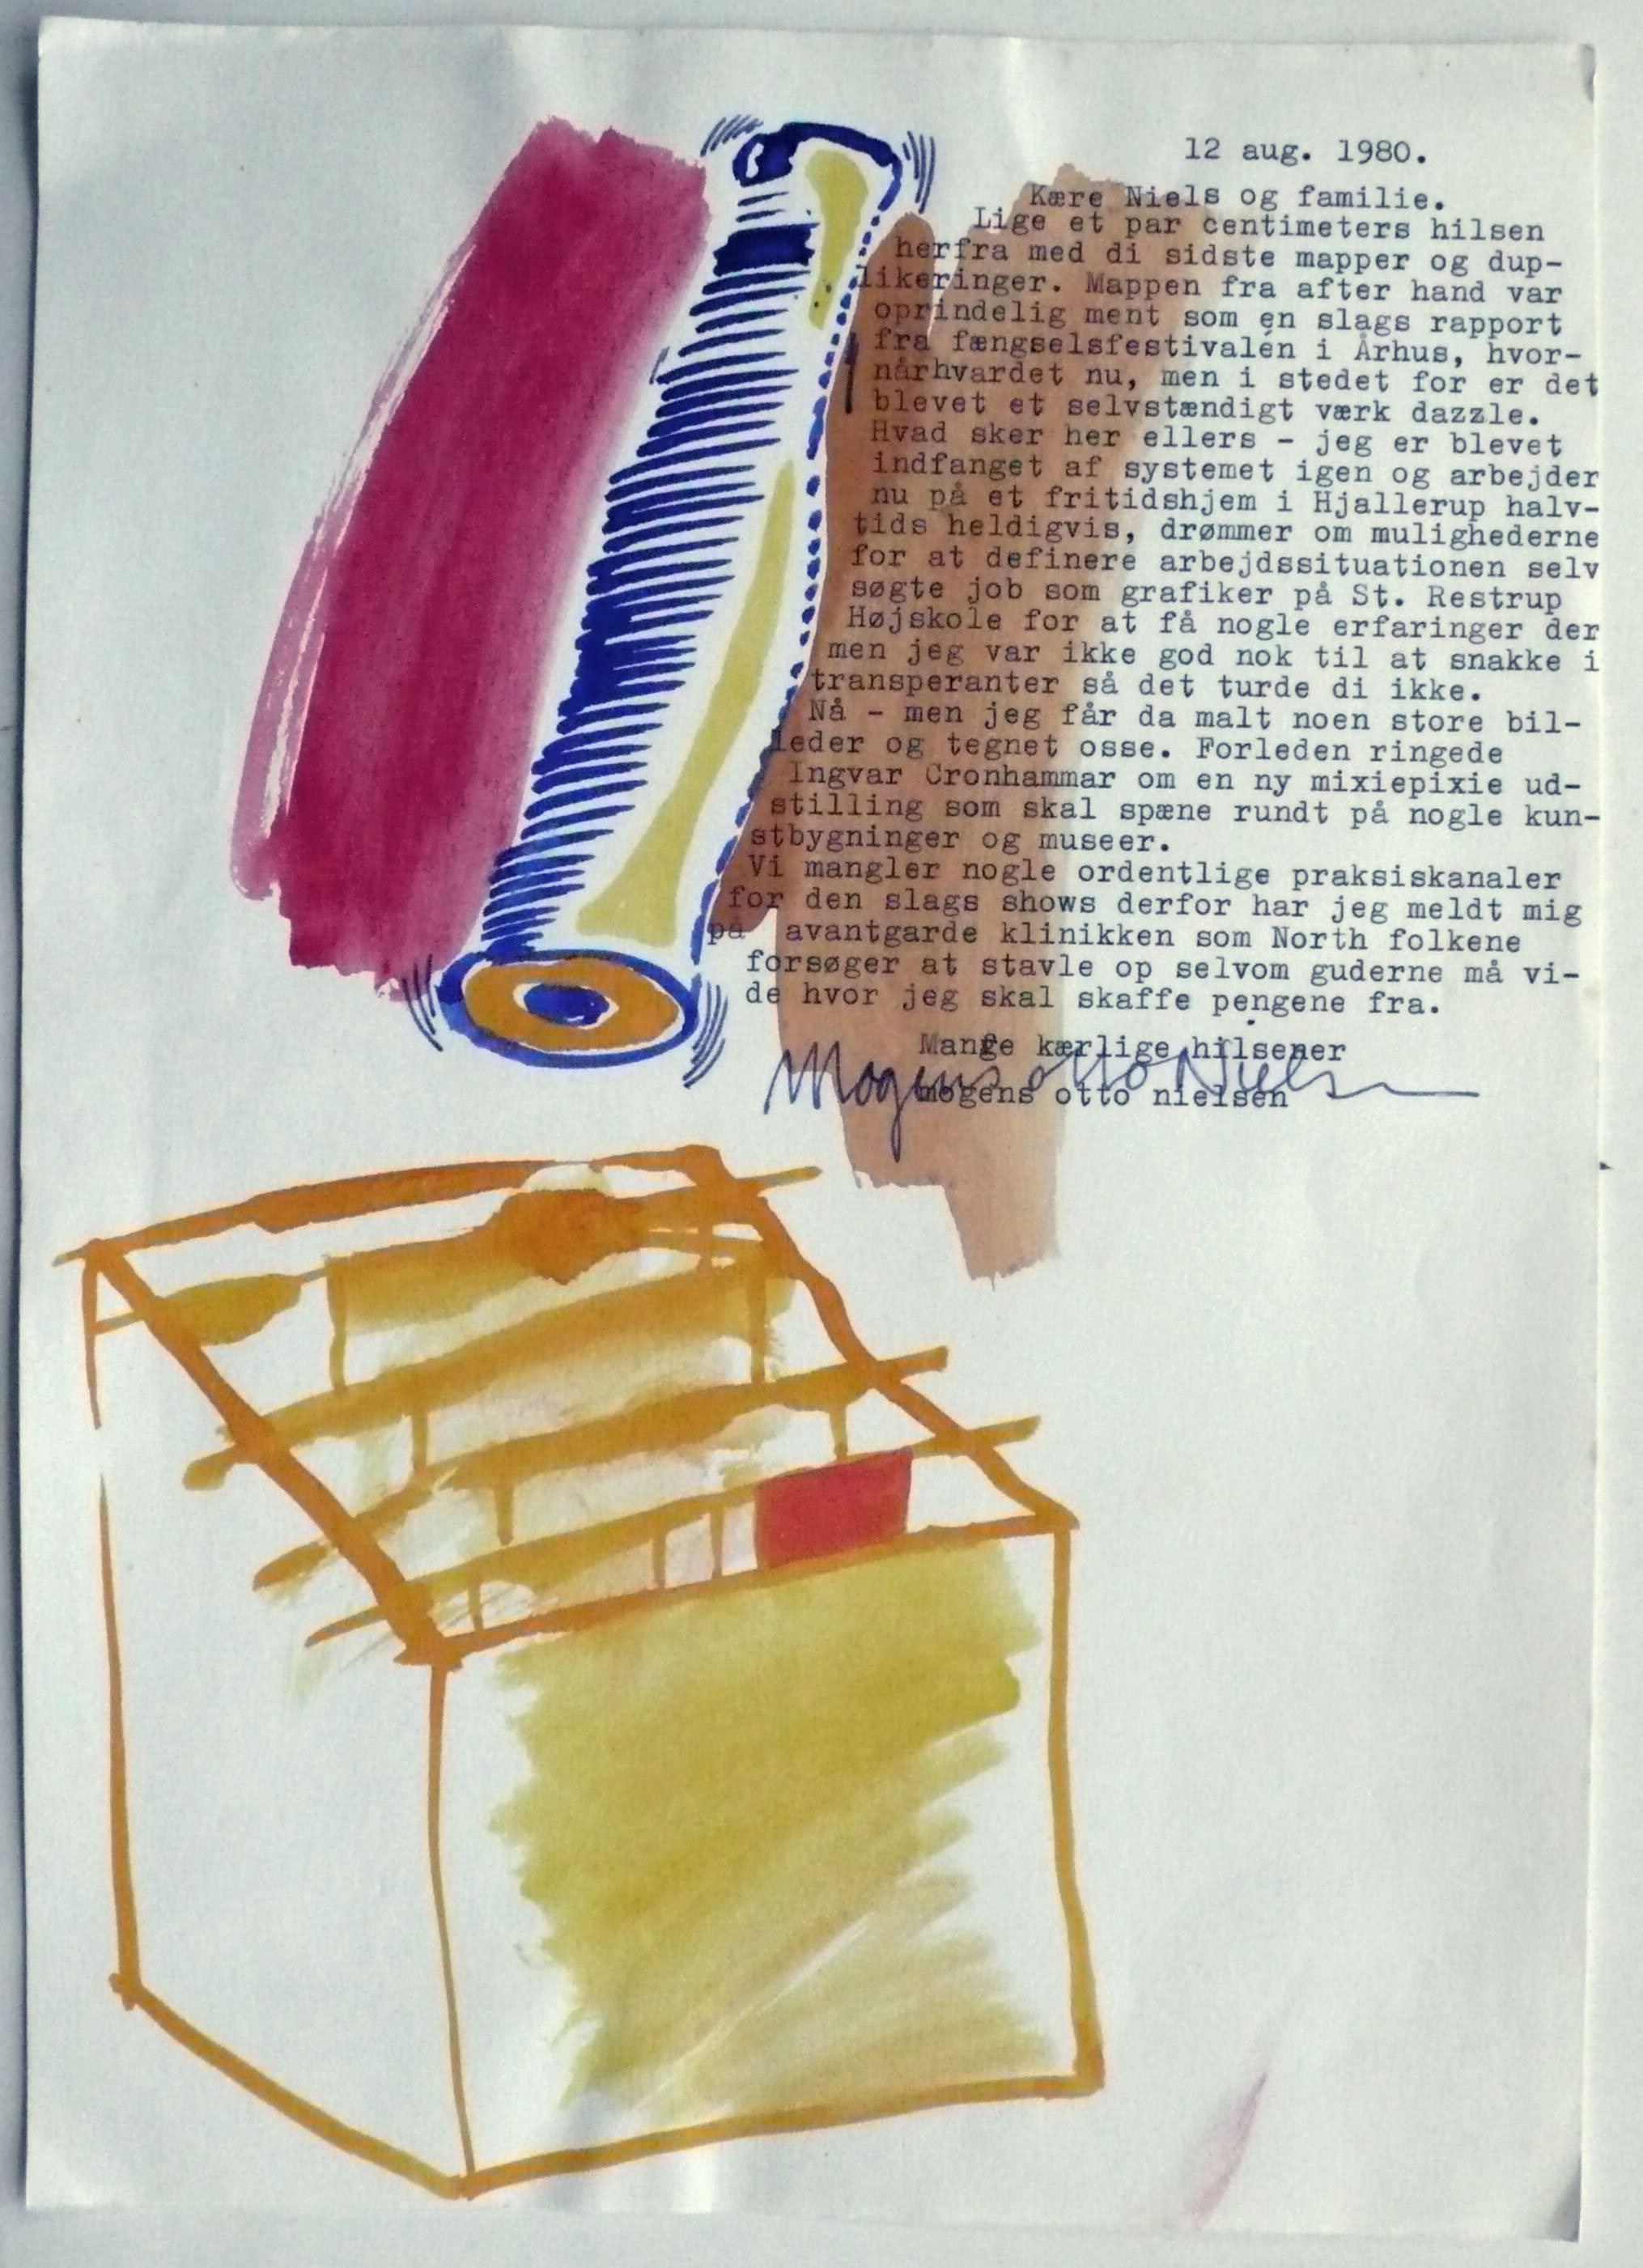 12 aug. 1980.
Kære Niels og familie.
Lige et par centimeters hilsen
herfra med di sidste mapper og dup-
likeringer. Mappen fra after hand var
oprindelig ment som en slags rapport
fra fængselsfestivalen i Århus, hvor-
nårhvardet nu, men i stedet for er det
blevet et selvstændigt værk dazzle.
Hvad sker her ellers - jeg er blevet
indfanget af systemet igen og arbejder
nu på et fritidshjem i Hjallerup halv-
tids heldigvis, drømmer om mulighederne
for at definere arbejdssituationen selv
søgte job som grafiker på St. Restrup
Højskole for at få nogle erfaringer der
men jeg var ikke god nok til at snakke i
transperanter så det turde di ikke.
Nå - men jeg får da malt noen store bil-
leder og tegnet osse. Forleden ringede
Ingvar Cronhammar om en ny mixiepixie ud-
stilling som skal spæne rundt på nogle kun-
stbygninger og museer.
Vi mangler nogle ordentlige praksiskanaler
for den slags shows derfor har jeg meldt mig
på avantgarde klinikken som North folkene
forsøger at stavle op selvom guderne må vi-
de hvor jeg skal skaffe pengene fra.
Mange kærlige hilsener
Mogens otto Nielsen
mogens otto nielsen